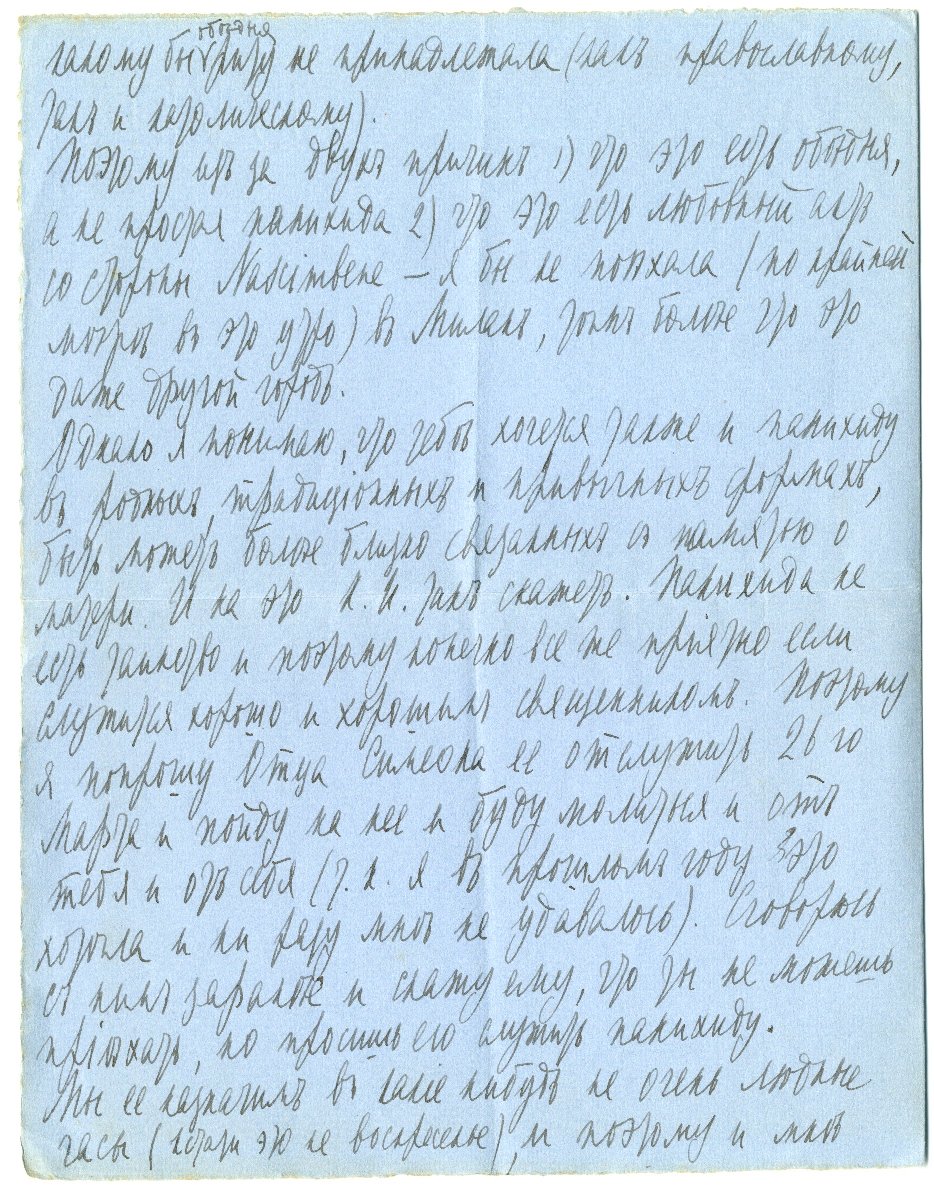 обѣдня
какому бы ризу не принадлежала (какъ православному,
такъ и католическому).
Поэтому изъ за двухъ причинъ 1) что это есть обѣдня,
а не простая панихида 2) что это есть любовный актъ
со стороны Nascimbene – я бы не поѣхала (по крайней
мѣрѣ въ это утро) въ Миланъ, тѣмъ болѣе что это
даже другой городъ.
Однако я понимаю, что тебѣ хочется также и панихиду
въ родныхъ, традиціонныхъ и привычныхъ формахъ,
быть можетъ болѣе близко связанныхъ съ памятью о
матери. И на это такъ скажетъ. Панихида не
есть таинство и поэтому конечно все же пріятно если
служится хорошо и хорошимъ священникомъ. Поэтому
я попрошу Отца Симеона ее отслужить 26 го
Марта и пойду на нее и буду молиться и отъ
тебя и отъ себя (т. к. я въ прошломъ году это
хотѣла и ни разу мнѣ не удавалось). Сговорюсь
съ нимъ заранѣе и скажу ему, что ты не можешь
пріѣхать, но просишь его служить панихиду.
Мы ее назначимъ въ какіе нибудь не очень людные
часы (кстати это не воскресенье), и поэтому и мнѣ